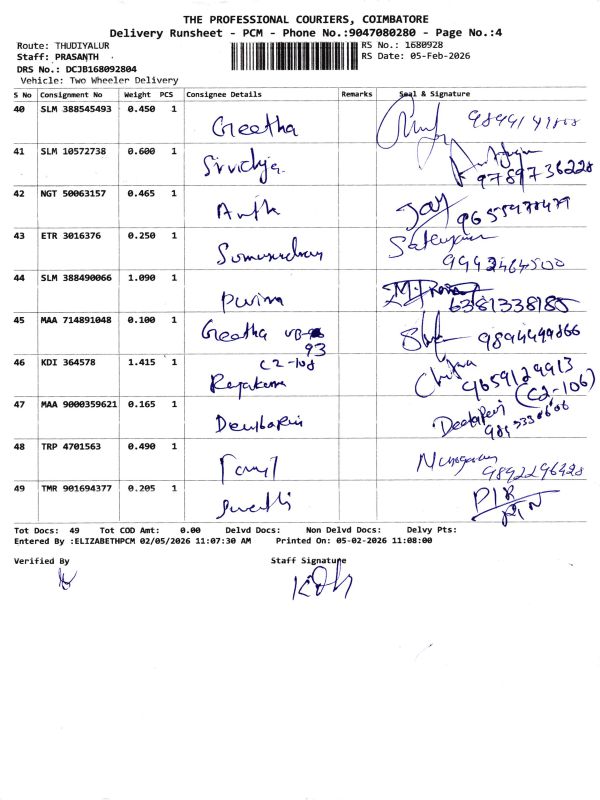 THE PROFESSIONAL COURIERS, COIMBATORE
Delivery Runsheet - PCM - Phone No.:9047080280 - Page No.:4
Route: THUDIYALUR
RS No.: 1680928
Staff: PRASANTH
RS Date: 05-Feb-2026
DRS No.: DCJB168092804
Vehicle: Two Wheeler Delivery
S No Consignment No Weight PCS Consignee Details Remarks Seal & Signature
40 SLM 388545493 0.450 1
Geetha
41 SLM 10572738 0.600 1
Srividya
9789736228
42 NGT 50063157 0.465 1
43 ETR 3016376 0.250 1
9942464500
44 SLM 388490066 1.090 1
6381338185
45 MAA 714891048 0.100 1
Geetha
93
9894499866
46 KDI 364578 1.415 1
C2-108
9659129913
(C2-106)
47 MAA 9000359621 0.165 1
48 TRP 4701563 0.490 1
9892296928
49 TMR 901694377 0.205 1
Swathi
Tot Docs: 49 Tot COD Amt: 0.00 Delvd Docs: Non Delvd Docs: Delvy Pts:
Entered By :ELIZABETHPCM 02/05/2026 11:07:30 AM Printed On: 05-02-2026 11:08:00
Verified By Staff Signature